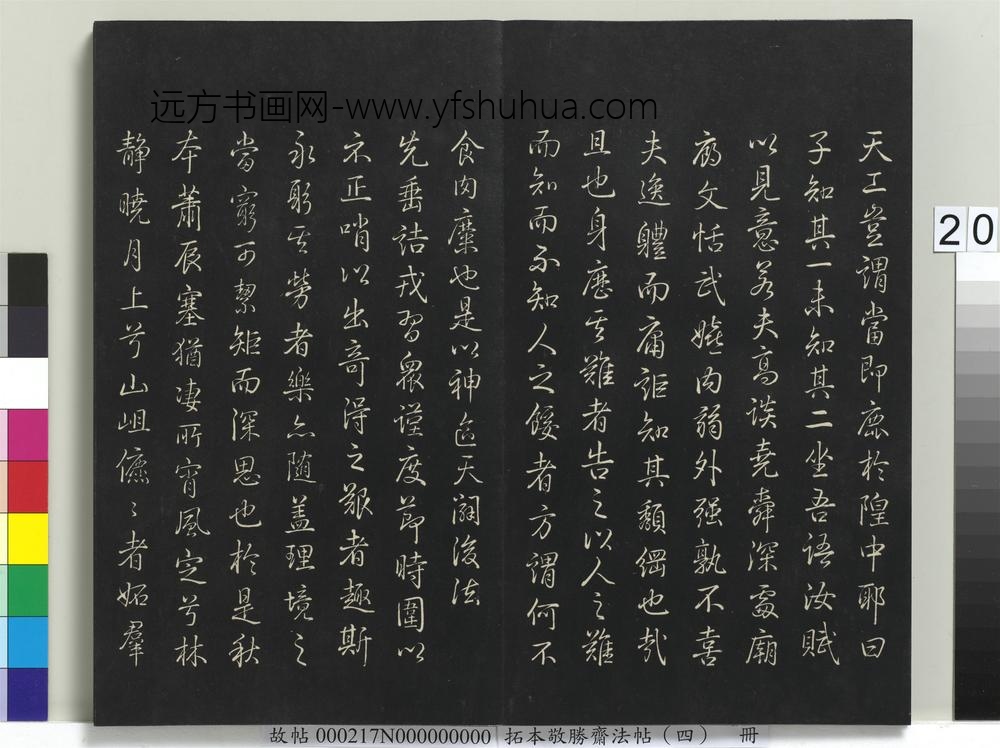 远方书画网-www.yfshuhua.com
天工豈謂當即鹿於隍中耶曰
子知其一未知其二坐吾語汝賦
以見意若夫高談堯舜深處廟
廊文恬武嬉內弱外强孰不喜
夫逸體而庸詎知其頹綱也哉
且也身歷其難者告之以人之難
而知而不知人之餒者方謂何不
食肉糜也是以神迄天閑後法
先垂詰戎習眾謹度節時圍以
不正哨以出奇得之艱者趣斯
永躬其勞者樂亦隨蓋理境之
當窮可絜矩而深思也於是秋
本蕭辰塞猶淒所宵風定兮林
靜曉月上兮山岨儦〻者妬羣
20
故帖 000217N000000000 拓本敬勝齋法帖（四） 冊